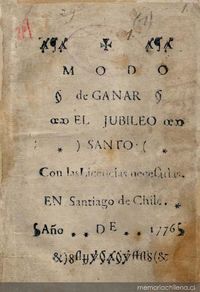 MODO
de GANAR
EL JUBILEO
) SANTO. (
Con las Licencias necesarias.
EN Santiago de Chile.
Año .. DE .. 1776
www.memoriachilena.cl